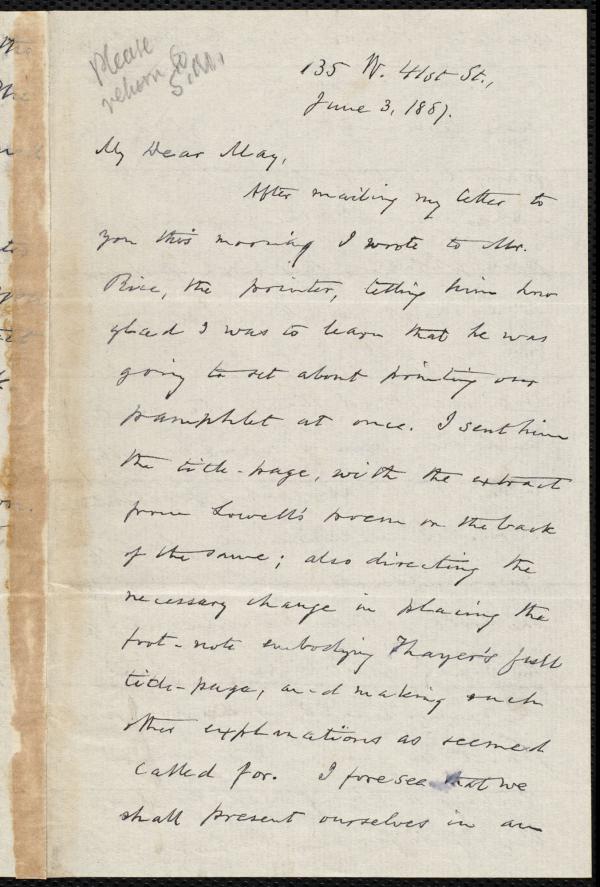 Please
return to
S. M.
135 W. 41st St.,
June 3, 1887.
My Dear May,
After mailing my letter to
you this morning I wrote to Mr.
Rice, the printer, telling him how
glad I was to learn that he was
going to set about printing our
pamphlet at once. I sent him
the title-page, with the extract
from Lowell's poem on the back
of the same; also directing the
necessary change in placing the
foot-note embodying Thayer's full
title-page, and making such
other explanations as seemed
called for. I foresee that we
shall present ourselves in an